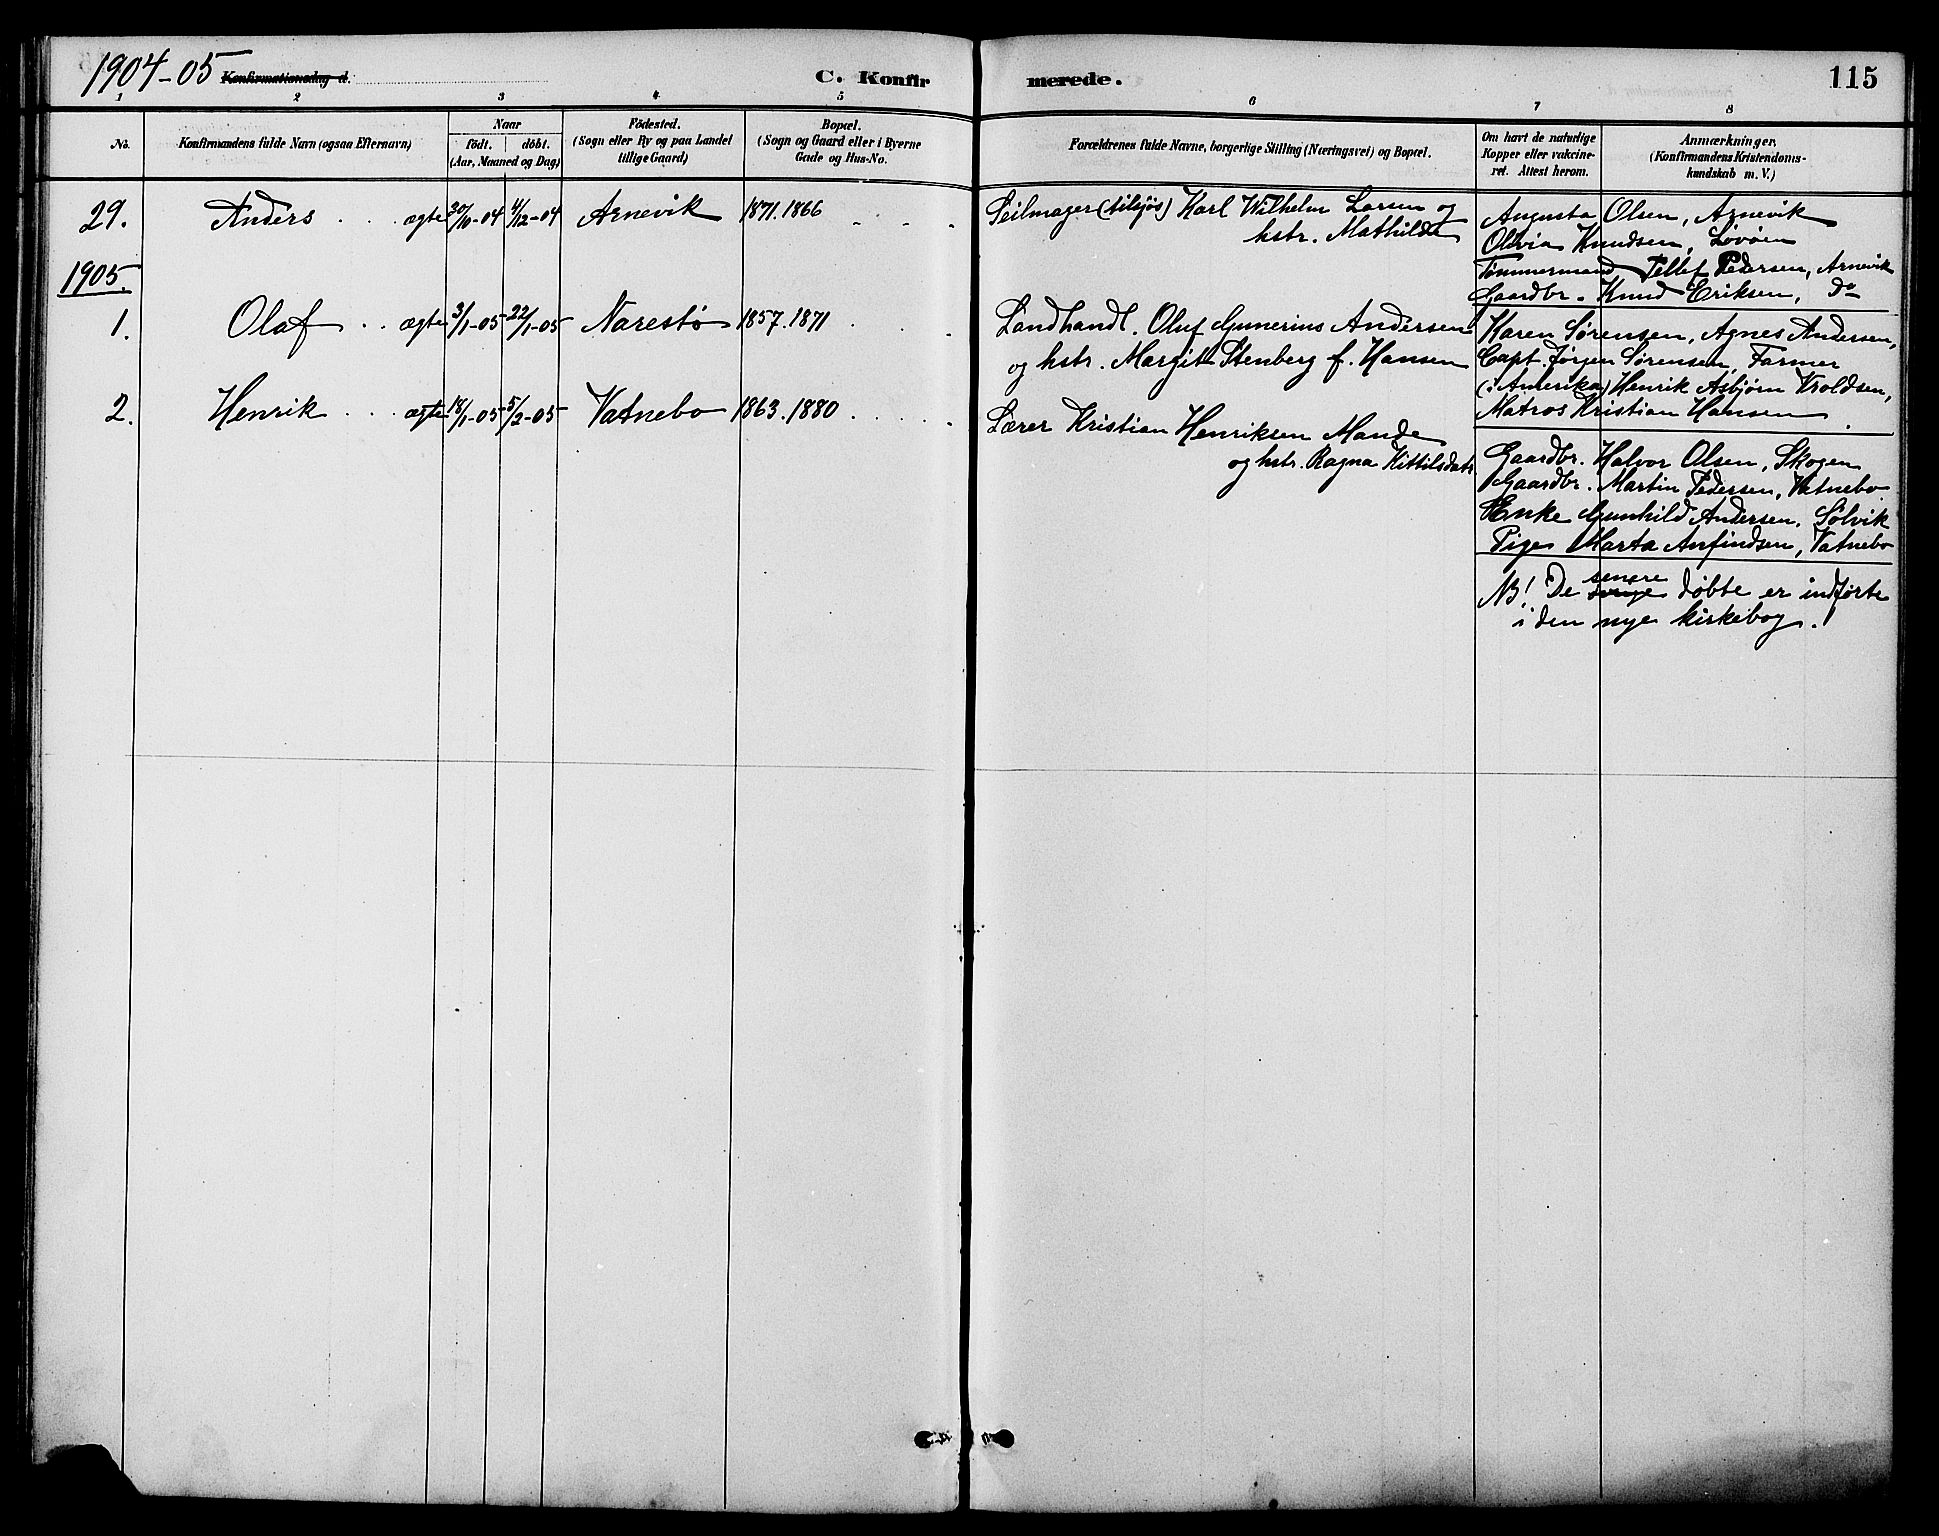 1904-05 Konfirmationsdag d. C. Konfir merede. 115
1 2 3 4 5 6 7 8
No. Konfirmandens fulde Navn (ogsaa Efternavn) Naar födt. döbt. (Aar, Maaned og Dag) Födested. (Sogn eller By og paa Landet tillige Gaard) Bopæl. (Sogn og Gaard eller i Byerne Gade og Hus-No. Forældrenes fulde Navne, borgerlige Stilling (Næringsvei) og Bopæl. Om havt de naturlige Kopper eller vakcineret. Attest herom. Anmærkninger. (Konfirmandens Kristendomskundskab m. V.)
29. Anders . . . ægte 30/10-04 4/12-04 Arnevik 1871. 1866 Seilmager (tilsjøs) Karl Wilhelm Larsen og
hstr. Mathilde
Augusta Olsen, Arnevik
Olivia Knudsen, Løvøen
Tømmermand Tellef Pedersen, Arnevik
Gaardbr. Knud Eriksen, do
1905.
1. Olaf . . ægte 3/1-05 22/1-05 Narestø 1857. 1871 Landhandl. Oluf Gunerius Andersen
og hstr. Margit Stenberg f. Hansen
Karen Sørensen, Agnes Andersen,
Capt. Jørgen Sørensen, Farmer
(i Amerika) Henrik Asbjørn Vroldsen,
Matros Kristian Hansen
2. Henrik . . . ægte 18/1-05 5/2-05 Vatnebo 1863. 1880 Lærer Kristian Henriksen Mande
og hstr. Ragna Kittilsdatr.
Gaardbr. Halvor Olsen, Skogen
Gaardbr. Martin Pedersen, Vatnebo
Enke Gunhild Andersen, Sølvik
Pige Marta Anfindsen, Vatnebo
NB! De senere døbte er indførte
i den nye kirkebog.